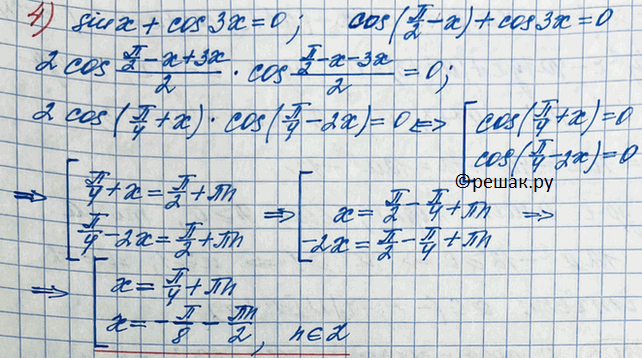 4) sinx + cos3x = 0; cos(π/2 - x) + cos3x = 0
2cos (π/2 - x + 3x)/2 · cos (π/2 - x - 3x)/2 = 0;
2cos(π/4 + x) · cos(π/4 - 2x) = 0 <=> [ cos(π/4 + x) = 0
cos(π/4 - 2x) = 0
©решак.ру
=> [ π/4 + x = π/2 + πn => [ x = π/2 - π/4 + πn =>
π/4 - 2x = π/2 + πn -2x = π/2 - π/4 + πn
=> [ x = π/4 + πn
x = -π/8 - πn/2, n∈Z